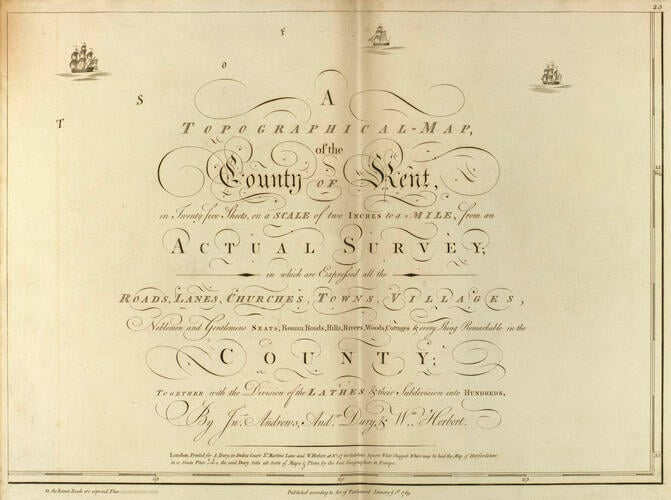 23
F
O
S
T
A
TOPOGRAPHICAL-MAP,
of the
County OF Kent,
in Twenty five Sheets, on a SCALE of two INCHES to a MILE, from an
ACTUAL SURVEY;
in which are Expressed all the
ROADS, LANES, CHURCHES, TOWNS, VILLAGES,
Noblemen and Gentlemens SEATS, Roman Roads, Hills, Rivers, Woods, Cottages & every Thing Remarkable in the
COUNTY;
TOGETHER with the Division of the LATHES & their Subdivision into HUNDREDS,
By Jn.º Andrews, And.w Dury, & W.m Herbert.
London, Printed for A. Dury, in Dukes Court St Martins Lane and W. Herbert at Nº 27 in Goulstons Square White Chappel Where may be had the Map of Hertfordshire
in Sheets Price the said Dury Sells all Sorts of Maps & Plans by the best Geographers in Europe.
N. the Roman Roads are expressed Thus
Published according to Act of Parliament January 1st 1769.